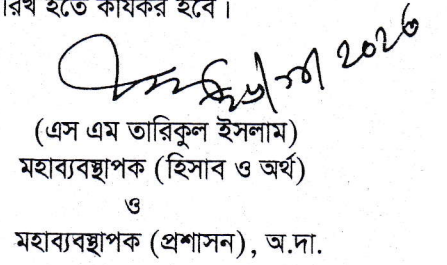 রিখ হতে কার্যকর হবে।
(এস এম তারিকুল ইসলাম)
মহাব্যবস্থাপক (হিসাব ও অর্থ)
ও
মহাব্যবস্থাপক (প্রশাসন), অ.দা.